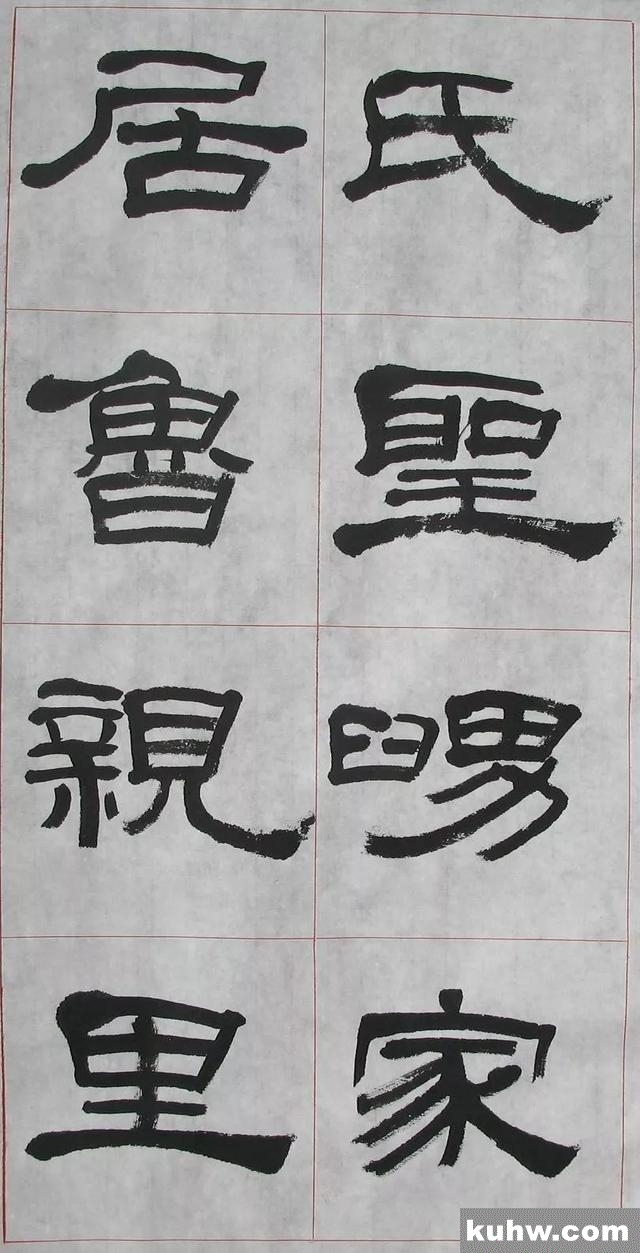 氏聖舅家
居魯親里
kuhw.com